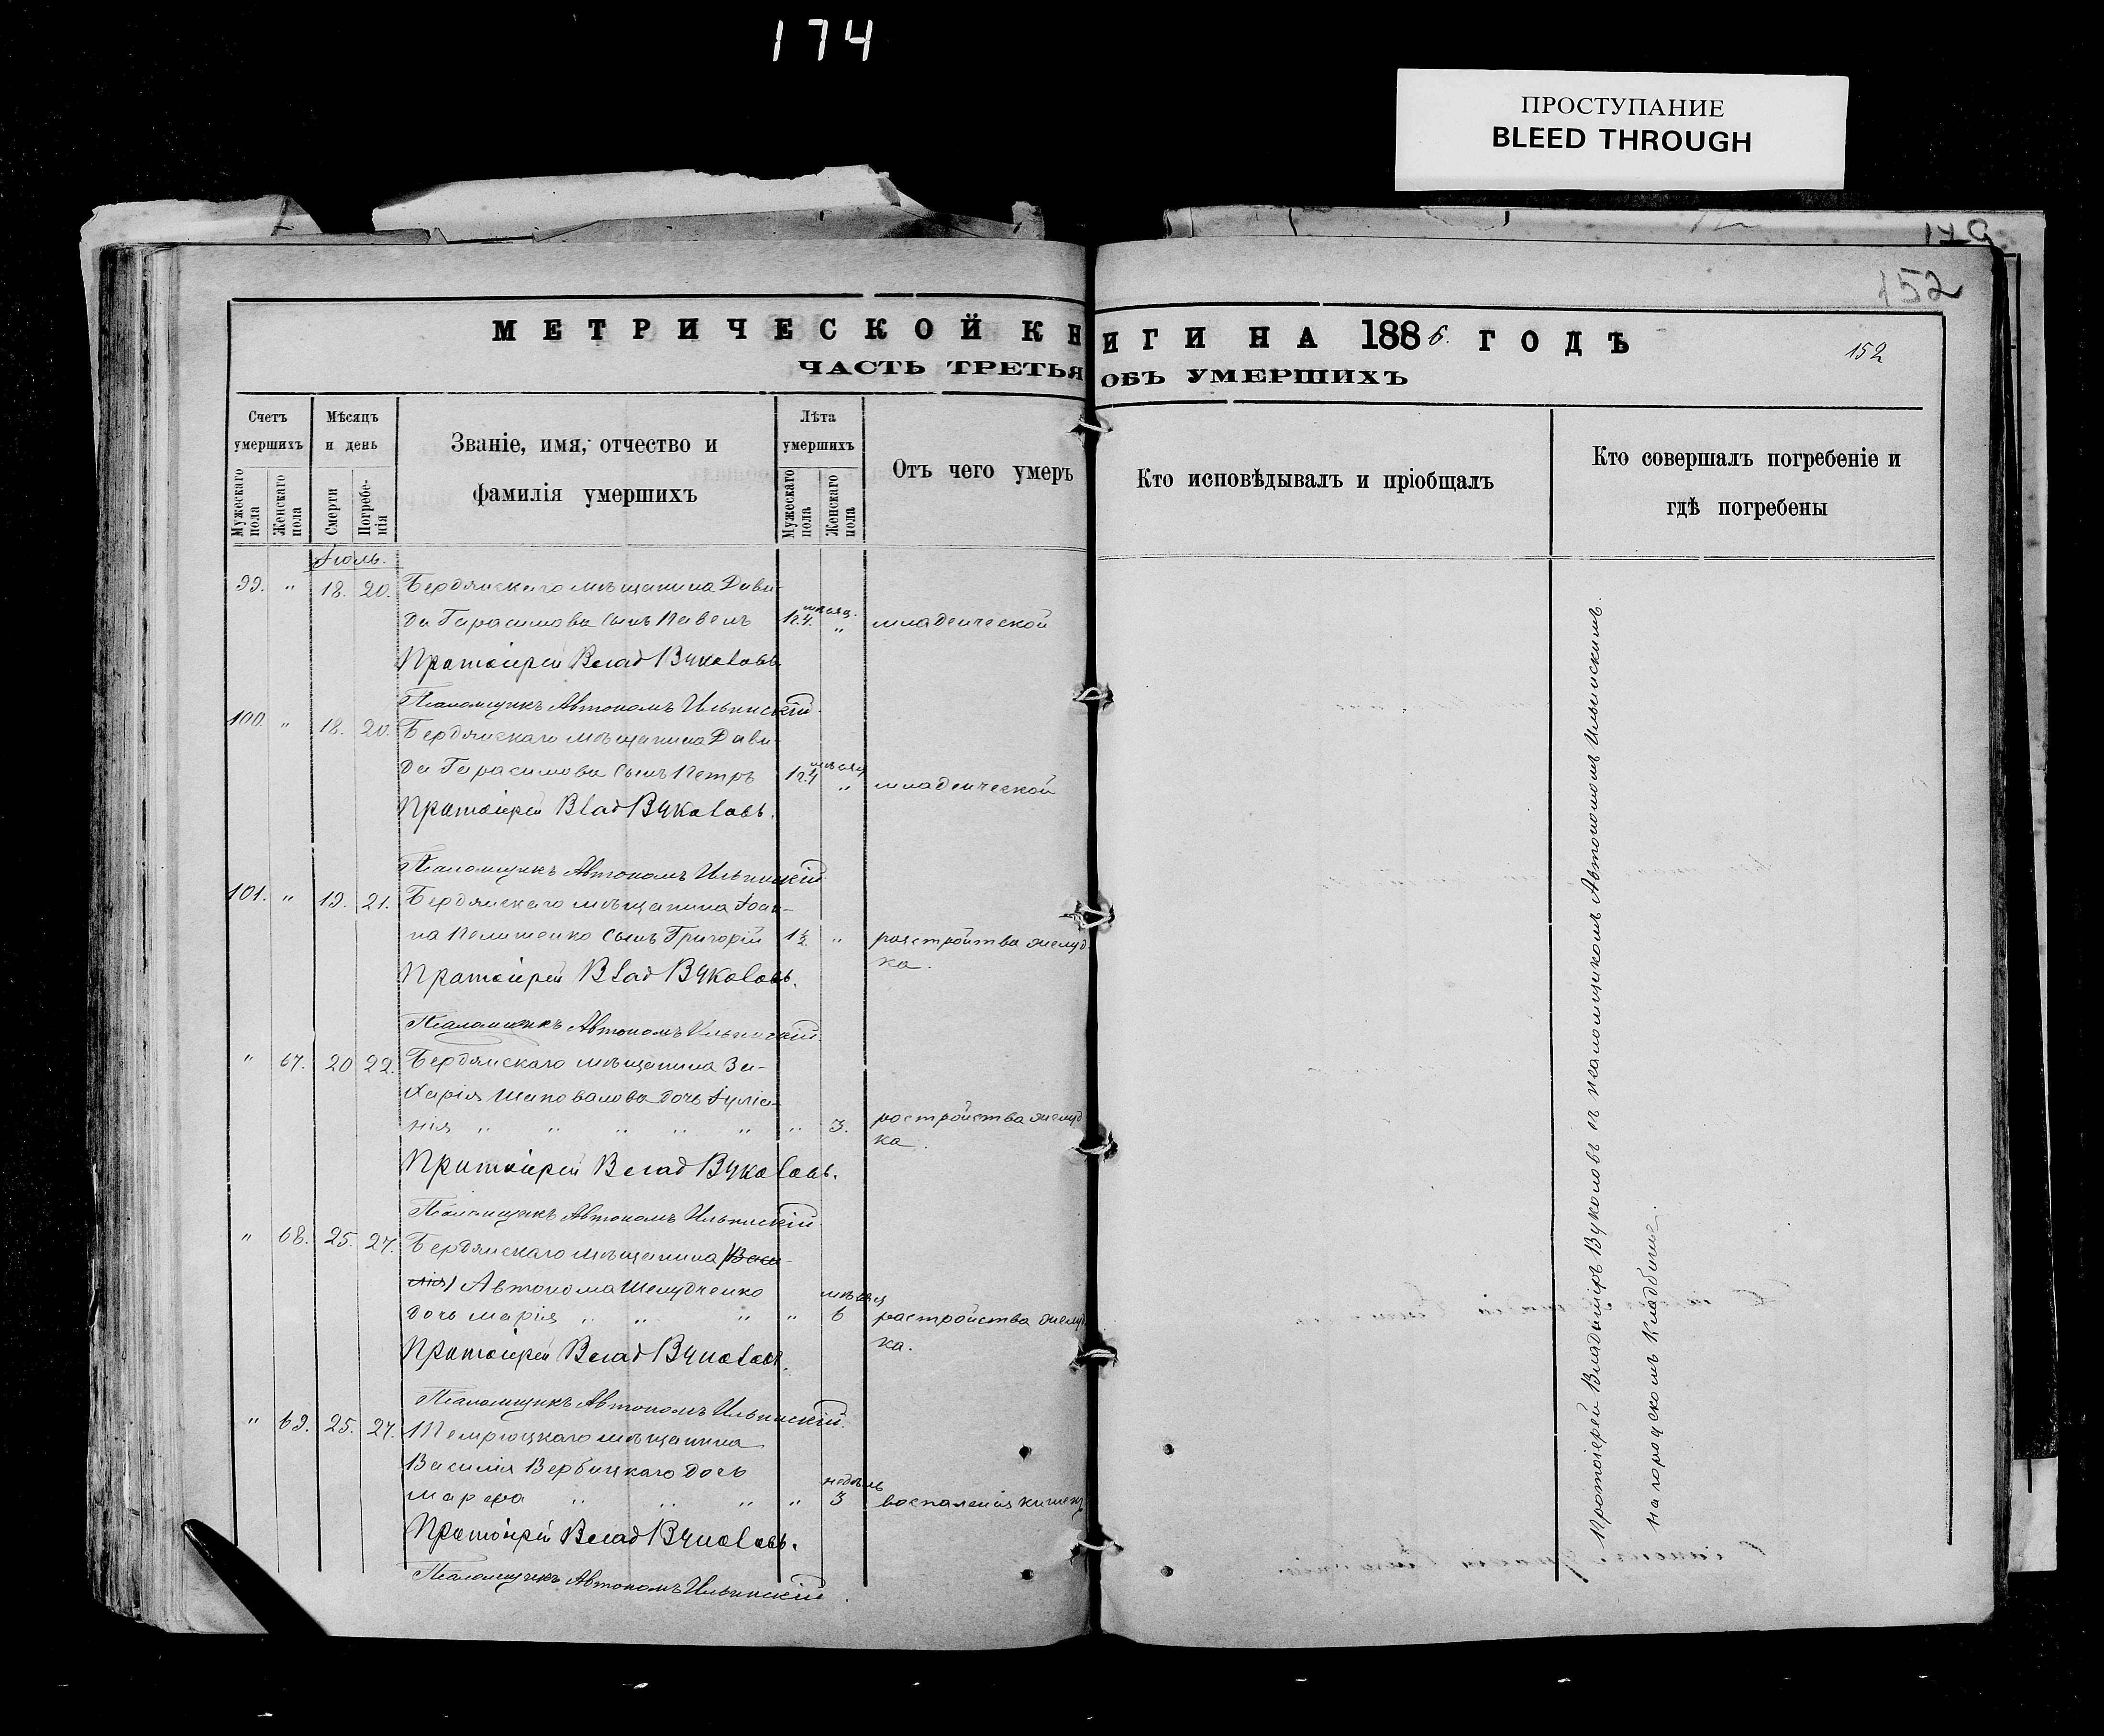 174
ПРОСТУПАНИЕ
BLEED THROUGH
179
152
МЕТРИЧЕСКОЙ КНИГИ НА 1886. ГОДЪ
152
ЧАСТЬ ТРЕТЬЯ ОБЪ УМЕРШИХЪ
Счетъ умершихъ
Мужескаго пола
Женскаго пола
Мѣсяцъ и день
Смерти
Погребенія
Званіе, имя, отчество и
фамилія умершихъ
Лѣта умершихъ
Мужескаго пола
Женскаго пола
Отъ чего умеръ
Кто исповѣдывалъ и пріобщалъ
Кто совершалъ погребеніе и
гдѣ погребены
Іюль.
99. " 18. 20. Бердянскаго мѣщанина Дави-
да Гарасимова сынъ Павелъ 1г.4 мѣсяц. " младенческой
Протоіерей Влад Вуколовъ
Псаломщикъ Автономъ Ильинскій.
100. " 18. 20. Бердянскаго мѣщанина Дави-
да Гарасимова сынъ Петръ 1г.4 мѣсяц " младенческой
Протоіерей Влад Вуколовъ.
Псаломщикъ Автономъ Ильинскій
101. " 19. 21. Бердянскаго мѣщанина Іоан-
на сынъ Григорій 1½ " разстройства желуд-
ка.
Протоіерей Влад Вуколовъ.
Псаломщикъ Автономъ Ильинскій.
" 67. 20 22. Бердянскаго мѣщанина За-
харія Шаповалова дочь Іуліа-
нія " " " " " " 3. растройства желуд
ка.
Протоіерей Влад Вуколовъ.
Псаломщикъ Автономъ Ильинскій
" 68. 25. 27. Бердянскаго мѣщанина (Васи-
лія) Автонома Шелудченко
дочь Марія " " " " 6 мѣсяц растройства желуд
ка.
Протоіерей Влад Вуколовъ.
Псаломщикъ Автономъ Ильинскій.
" 69. 25. 27. Темрюцкаго мѣщанина
Василія Вербицкаго дочь
Марфа " " " " 3 недѣль воспаленія кишекъ
Протоіерей Влад Вуколовъ.
Псаломщикъ Автономъ Ильинскій.
Протоіерей Владиміръ Вуколовъ съ псаломщикомъ Автономомъ Ильинскимъ.
на городскомъ кладбищѣ.